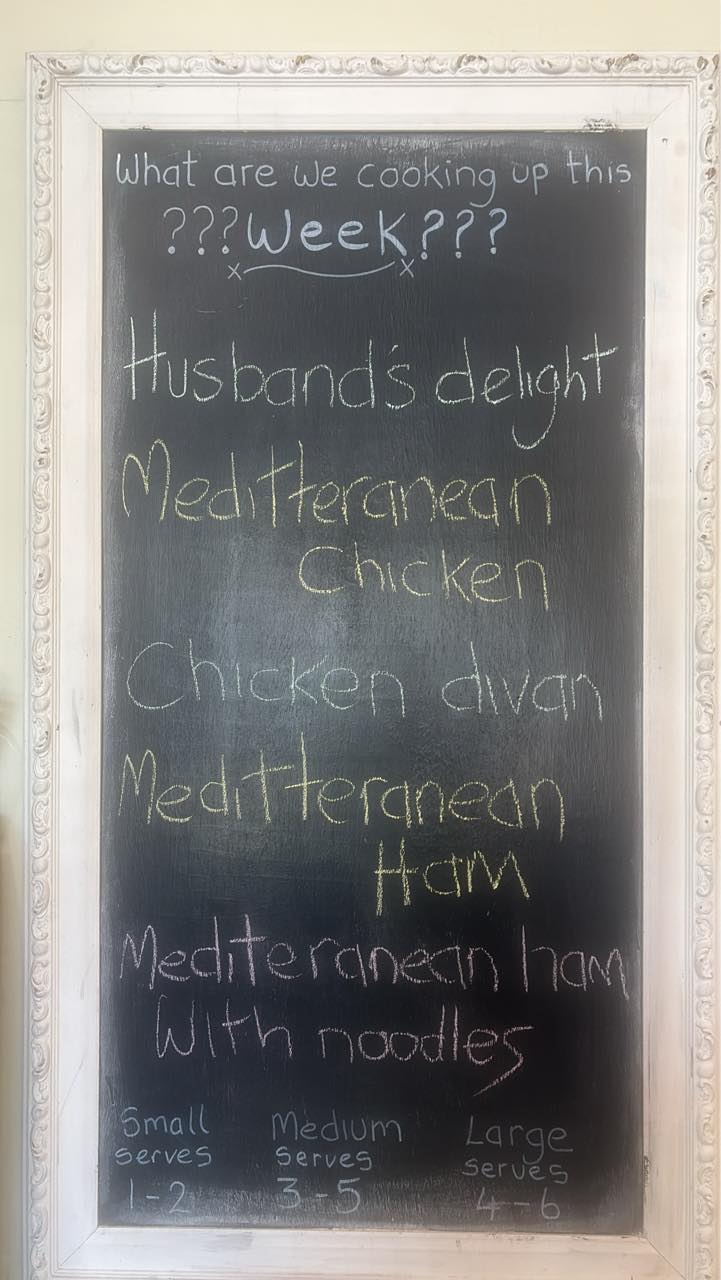 What are we cooking up this
???Week???
Husband's delight
Meditteranean
Chicken
Chicken divan
Meditteranean
Ham
Mediteranean ham
With noodles
Small Medium Large
serves serves serves
1-2 3-5 4-6